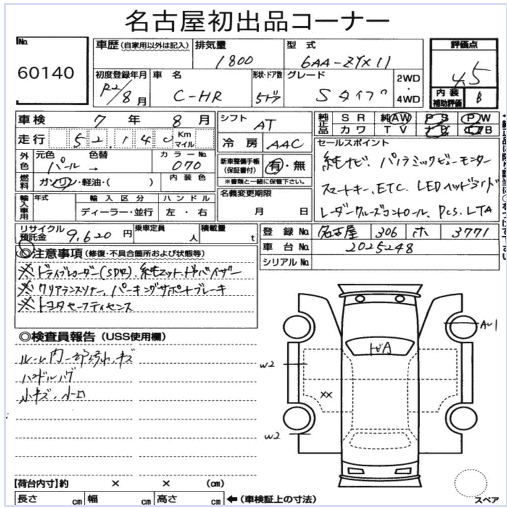 名古屋初出品コーナー
No.
60140
車歴 (自家用以外は記入)
排気量
1800
型式
6AA-ZYX11
評価点
4.5
初度登録年月
R2/8月
車名
C-HR
形状・ドア数
5ドア
グレード
Sタイプ
2WD
4WD
内装補助評価
B
車検 7年 8月
シフト
AT
純正品 SR 純AW PS PW
カワ TV
走行 52,140 Km マイル
冷房
AAC
セールスポイント
外色 元色 パール 色替 → カラーNo. 070
新車整備手帳(保証書付) 有・無
※書類と一緒に保管下さい。
純ナビ、パノラミックビューモニター
燃料 ガソリン・軽油・( ) 内装色
名義変更期限
月 日
スマートキー、ETC、LEDヘッドライト
輸入車用 年式 輸入区分 ハンドル
ディーラー・並行 左・右
レーダークルーズコントロール、PCS、LTA
リサイクル預託金 9,620円 乗車定員 人 積載量 t
登録No. 名古屋 306 ホ 3771
車台No. 2025248
シリアルNo.
◎注意事項 (修復・不具合箇所および状態等)
※ドライブレコーダー(SDR)、純マット、ドアバイザー
※クリアランスソナー、パーキングサポートブレーキ
※トヨタセーフティセンス
◎検査員報告 (USS使用欄)
ルーム内
小キズ、
A
AU1
W2
XX
W2
【荷台内寸】約 × × (㎝)
長さ ㎝ 幅 ㎝ 高さ ㎝ ←(車検証上の寸法)
スペア